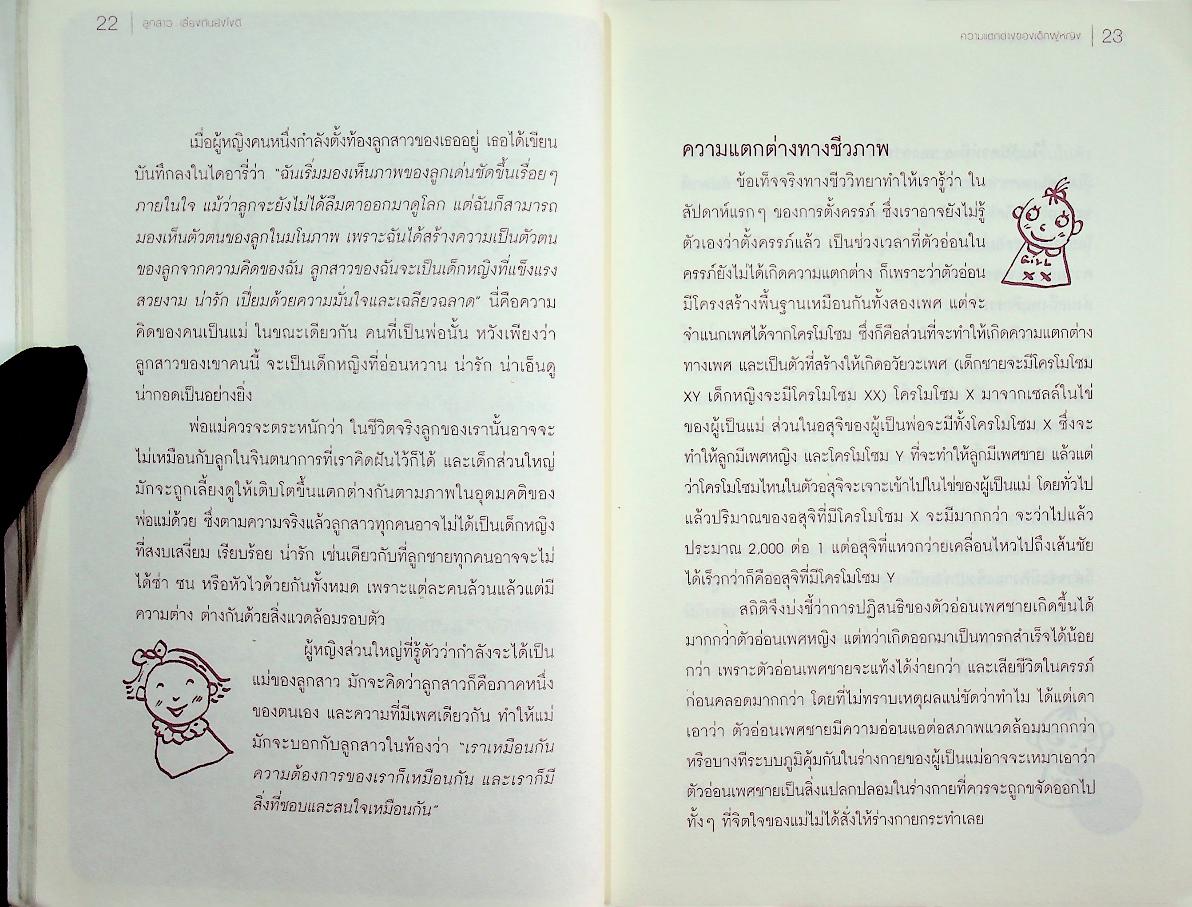 22 ลูกสาว เลี้ยงกันยังไงดี
เมื่อผู้หญิงคนหนึ่งกำลังตั้งท้องลูกสาวของเธออยู่ เธอได้เขียน
บันทึกลงในไดอารี่ว่า “ฉันเริ่มมองเห็นภาพของลูกเด่นชัดขึ้นเรื่อยๆ
ภายในใจ แม้ว่าลูกจะยังไม่ได้ลืมตาออกมาดูโลก แต่ฉันก็สามารถ
มองเห็นตัวตนของลูกในมโนภาพ เพราะฉันได้สร้างความเป็นตัวตน
ของลูกจากความคิดของฉัน ลูกสาวของฉันจะเป็นเด็กหญิงที่แข็งแรง
สวยงาม น่ารัก เปี่ยมด้วยความมั่นใจและเฉลียวฉลาด” นี่คือความ
คิดของคนเป็นแม่ ในขณะเดียวกัน คนที่เป็นพ่อนั้น หวังเพียงว่า
ลูกสาวของเขาคนนี้ จะเป็นเด็กหญิงที่อ่อนหวาน น่ารัก น่าเอ็นดู
น่ากอดเป็นอย่างยิ่ง
พ่อแม่ควรจะตระหนักว่า ในชีวิตจริงลูกของเรานั้นอาจจะ
ไม่เหมือนกับลูกในจินตนาการที่เราคิดฝันไว้ก็ได้ และเด็กส่วนใหญ่
มักจะถูกเลี้ยงดูให้เติบโตขึ้นแตกต่างกันตามภาพในอุดมคติของ
พ่อแม่ด้วย ซึ่งตามความจริงแล้วลูกสาวทุกคนอาจไม่ได้เป็นเด็กหญิง
ที่สงบเสงี่ยม เรียบร้อย น่ารัก เช่นเดียวกับที่ลูกชายทุกคนอาจจะไม่
ได้ซ่า ซน หรือหัวไวด้วยกันทั้งหมด เพราะแต่ละคนล้วนแล้วแต่มี
ความต่าง ต่างกันด้วยสิ่งแวดล้อมรอบตัว
ผู้หญิงส่วนใหญ่ที่รู้ตัวว่ากำลังจะได้เป็น
แม่ของลูกสาว มักจะคิดว่าลูกสาวก็คือภาคหนึ่ง
ของตนเอง และความที่มีเพศเดียวกัน ทำให้แม่
มักจะบอกกับลูกสาวในท้องว่า “เราเหมือนกัน
ความต้องการของเราก็เหมือนกัน และเราก็มี
สิ่งที่ชอบและสนใจเหมือนกัน”
ความแตกต่างของเด็กผู้หญิง 23
ความแตกต่างทางชีวภาพ
ข้อเท็จจริงทางชีววิทยาทำให้เรารู้ว่า ใน
สัปดาห์แรกๆ ของการตั้งครรภ์ ซึ่งเราอาจยังไม่รู้
ตัวเองว่าตั้งครรภ์แล้ว เป็นช่วงเวลาที่ตัวอ่อนใน
ครรภ์ยังไม่ได้เกิดความแตกต่าง ก็เพราะว่าตัวอ่อน
มีโครงสร้างพื้นฐานเหมือนกันทั้งสองเพศ แต่จะ
GIRL
XX
จำแนกเพศได้จากโครโมโซม ซึ่งก็คือส่วนที่จะทำให้เกิดความแตกต่าง
ทางเพศ และเป็นตัวที่สร้างให้เกิดอวัยวะเพศ (เด็กชายจะมีโครโมโซม
XY เด็กหญิงจะมีโครโมโซม XX) โครโมโซม X มาจากเซลล์ในไข่
ของผู้เป็นแม่ ส่วนในอสุจิของผู้เป็นพ่อจะมีทั้งโครโมโซม X ซึ่งจะ
ทำให้ลูกมีเพศหญิง และโครโมโซม Y ที่จะทำให้ลูกมีเพศชาย แล้วแต่
ว่าโครโมโซมไหนในตัวอสุจิจะเจาะเข้าไปในไข่ของผู้เป็นแม่ โดยทั่วไป
แล้วปริมาณของอสุจิที่มีโครโมโซม X จะมีมากกว่า จะว่าไปแล้ว
ประมาณ 2,000 ต่อ 1 แต่อสุจิที่แหวกว่ายเคลื่อนไหวไปถึงเส้นชัย
ได้เร็วกว่าก็คืออสุจิที่มีโครโมโซม Y
สถิติจึงบ่งชี้ว่าการปฏิสนธิของตัวอ่อนเพศชายเกิดขึ้นได้
มากกว่าตัวอ่อนเพศหญิง แต่ทว่าเกิดออกมาเป็นทารกสำเร็จได้น้อย
กว่า เพราะตัวอ่อนเพศชายจะแท้งได้ง่ายกว่า และเสียชีวิตในครรภ์
ก่อนคลอดมากกว่า โดยที่ไม่ทราบเหตุผลแน่ชัดว่าทำไม ได้แต่เดา
เอาว่า ตัวอ่อนเพศชายมีความอ่อนแอต่อสภาพแวดล้อมมากกว่า
หรือบางทีระบบภูมิคุ้มกันในร่างกายของผู้เป็นแม่อาจจะเหมาเอาว่า
ตัวอ่อนเพศชายเป็นสิ่งแปลกปลอมในร่างกายที่ควรจะถูกขจัดออกไป
ทั้งๆ ที่จิตใจของแม่ไม่ได้สั่งให้ร่างกายกระทำเลย